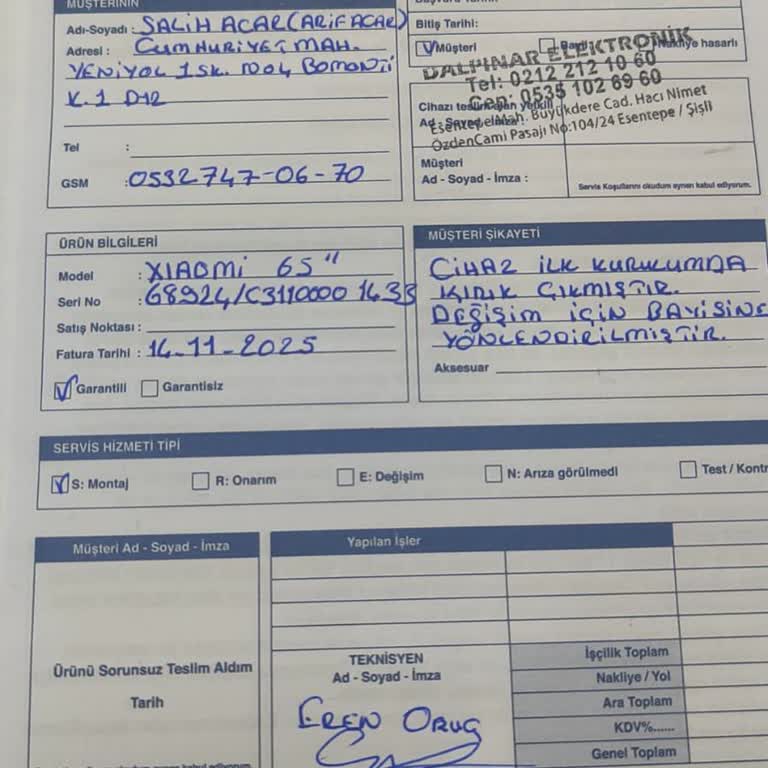 MÜŞTERİNİN
Adı-Soyadı : SALİH ACAR (ARİF ACAR)
Adresi : CUMHURİYET MAH.
YENİYOL 1 SK. NO4 BOMONTİ
K.1 D12
Tel :
GSM : 0532 747-06-70
Bitiş Tarihi:
Müşteri
Nakliye hasarlı
DALPINAR ELEKTRONİK
Tel: 0212 212 10 60
Cep: 0535 102 69 60
Esentepe Mah. Büyükdere Cad. Hacı Nimet
ÖzdenCami Pasajı No:104/24 Esentepe / Şişli
Cihazı teslim alan yetkili
Ad - Soyad - İmza :
Müşteri
Ad - Soyad - İmza :
Servis Koşullarını okudum aynen kabul ediyorum.
ÜRÜN BİLGİLERİ
Model : XIAOMİ 65"
Seri No : 68924/C31100001433
Satış Noktası :
Fatura Tarihi : 14-11-2025
Garantili Garantisiz
MÜŞTERİ ŞİKAYETİ
CİHAZ İLK KURULUMDA
KIRIK ÇIKMIŞTIR.
DEĞİŞİM İÇİN BAYİSİNE
YÖNLENDİRİLMİŞTİR.
Aksesuar
SERVİS HİZMETİ TİPİ
S: Montaj R: Onarım E: Değişim N: Arıza görülmedi Test / Kontr
Müşteri Ad - Soyad - İmza
Ürünü Sorunsuz Teslim Aldım
Tarih
Yapılan İşler
TEKNİSYEN
Ad - Soyad - İmza
EREN ORUÇ
İşçilik Toplam
Nakliye / Yol
Ara Toplam
KDV%......
Genel Toplam